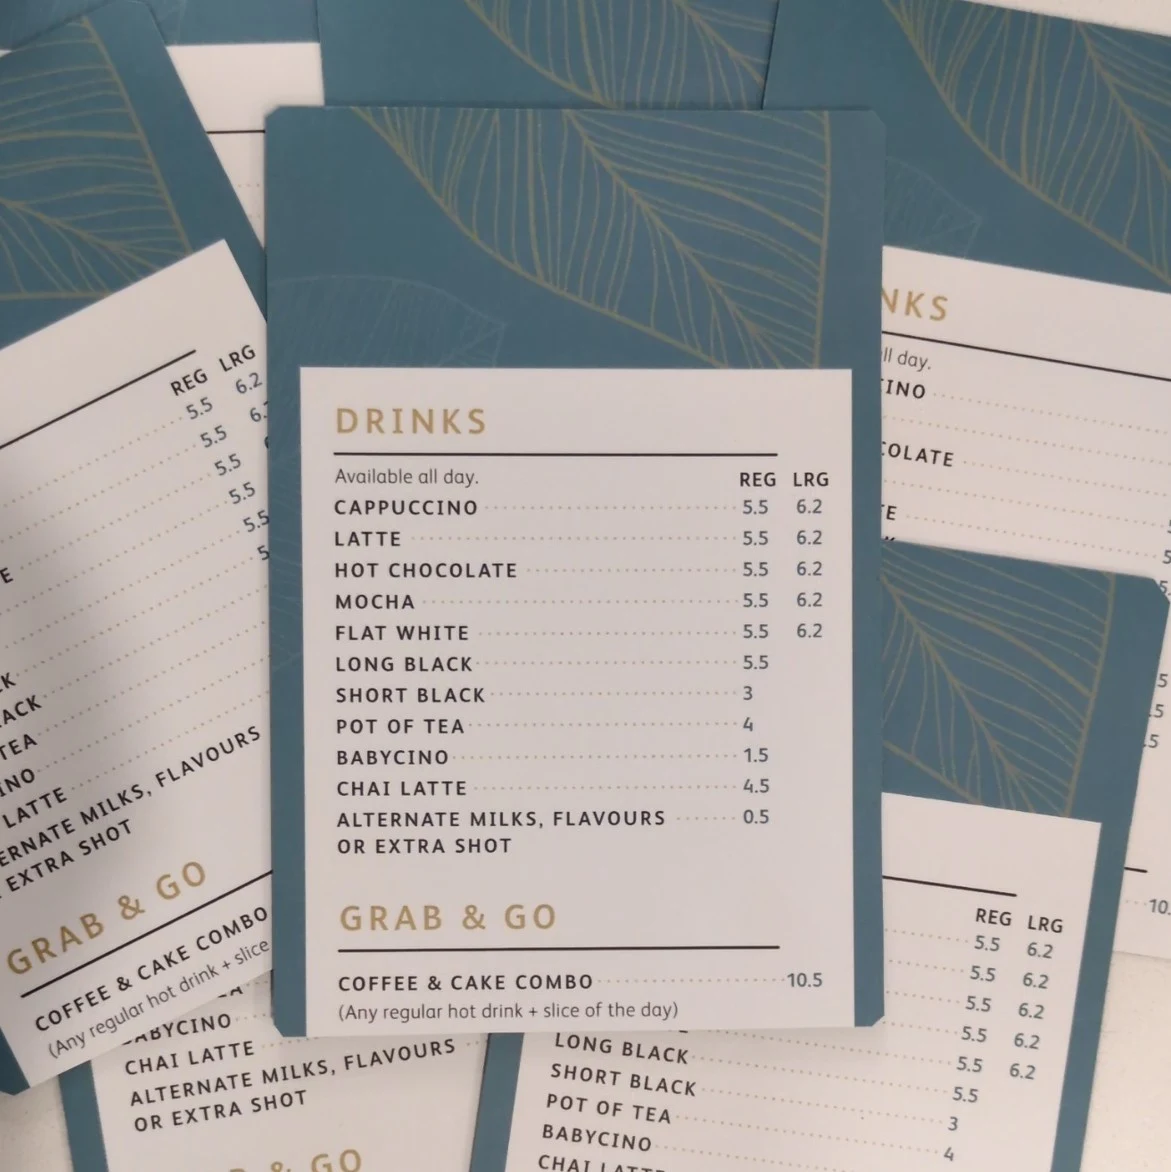 DRINKS
Available all day. REG LRG
CAPPUCCINO 5.5 6.2
LATTE 5.5 6.2
HOT CHOCOLATE 5.5 6.2
MOCHA 5.5 6.2
FLAT WHITE 5.5 6.2
LONG BLACK 5.5
SHORT BLACK 3
POT OF TEA 4
BABYCINO 1.5
CHAI LATTE 4.5
ALTERNATE MILKS, FLAVOURS 0.5
OR EXTRA SHOT
GRAB & GO
COFFEE & CAKE COMBO 10.5
(Any regular hot drink + slice of the day)
REG LRG
5.5 6.2
5.5
5.5
5.5
5.5
TEA
LATTE
MILKS, FLAVOURS
EXTRA SHOT
GRAB & GO
COFFEE & CAKE COMBO
(Any regular hot drink + slice
BABYCINO
CHAI LATTE
ALTERNATE MILKS, FLAVOURS
OR EXTRA SHOT
& GO
NKS
all day.
INO
COLATE
REG LRG
5.5 6.2
5.5 6.2
5.5 6.2
5.5 6.2
5.5 6.2
LONG BLACK 5.5
SHORT BLACK 3
POT OF TEA 4
BABYCINO
CHAI LATTE